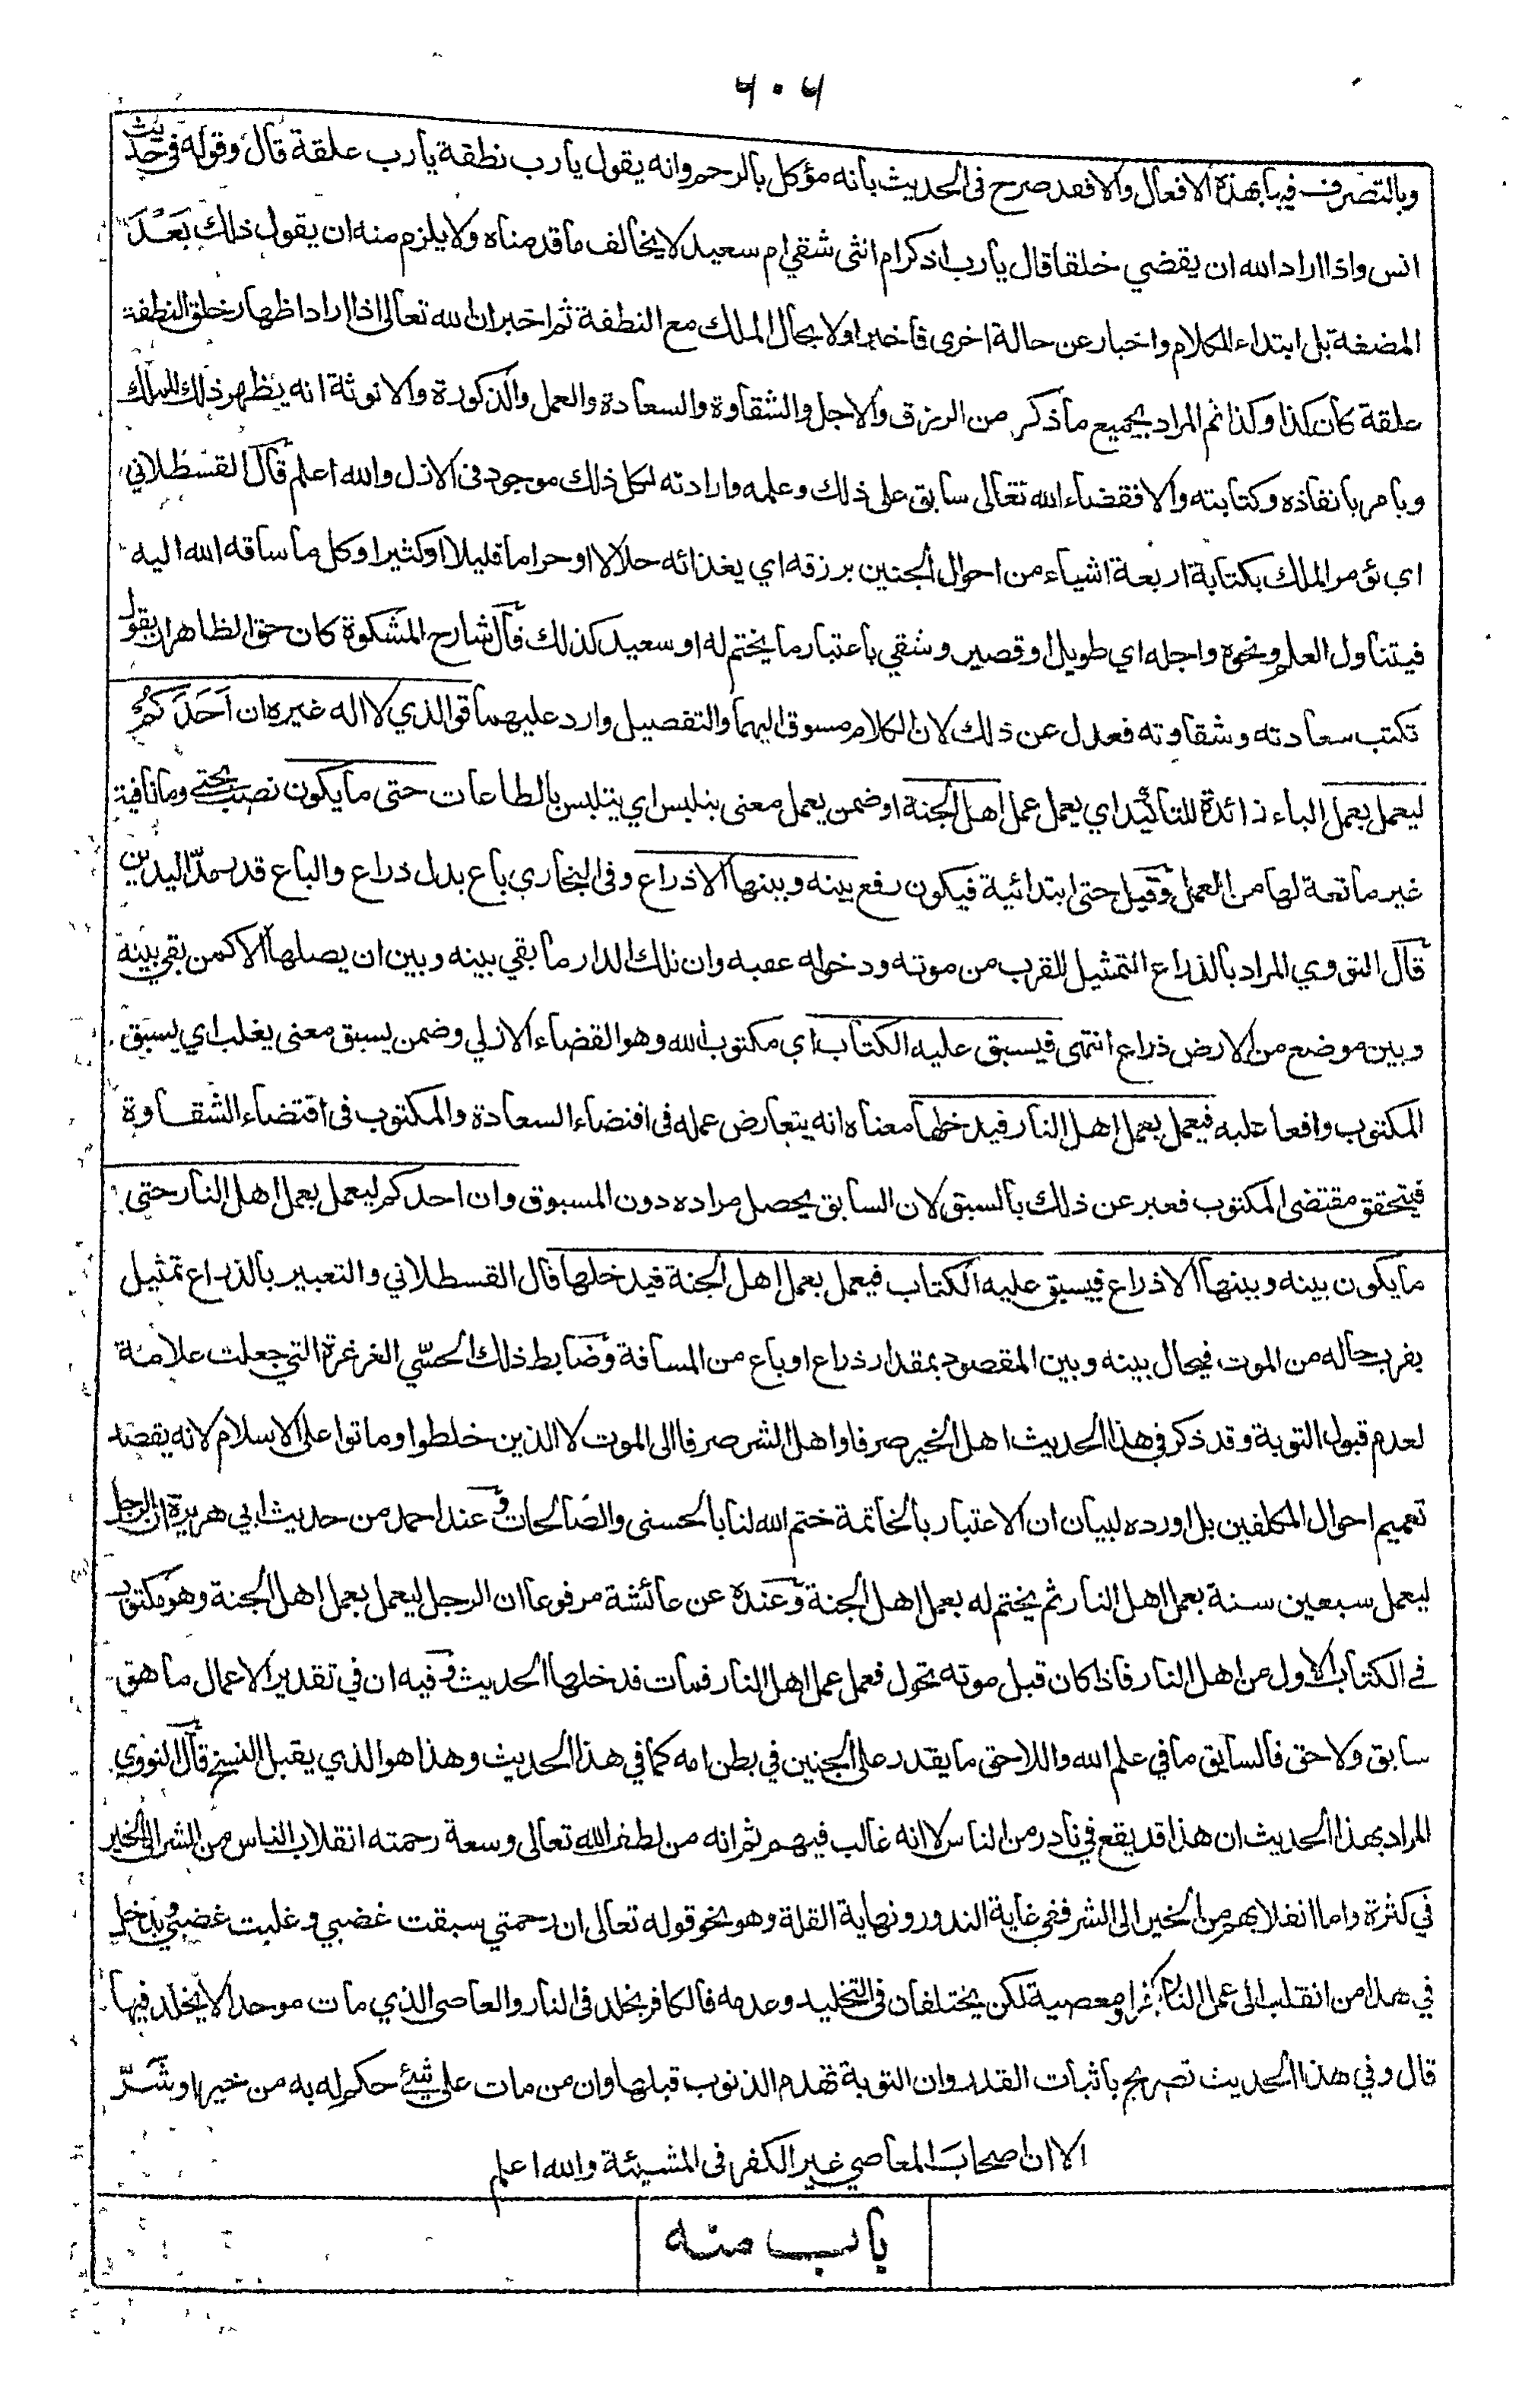 ٢٠٦
وبالتصرف فيها بهذه الافعال والا فقد صرح فى الحديث بأنه مؤكل بالرحم وانه يقول يارب نطفة يارب علقة قال وقوله فى حديث
انس واذا اراد الله ان يقضي خلقا قال يارب اذكر ام انثى شقي ام سعيد لا يخالف ما قدمناه ولا يلزم منه ان يقول ذلك بَعْدَ
المضغة بل ابتداء الكلام واخبار عن حالة اخرى فأخبر اولا بحال الملك مع النطفة ثم اخبر ان الله تعالى اذا اراد اظهار خلق النطفة
علقة كان كذا وكذا ثم المراد بجميع ما ذكر من الرزق والاجل والشقاوة والسعادة والعمل والذكورة والانوثة انه يظهر ذلك للملك
ويامر بانفاذه وكتابته والا فقضاء الله تعالى سابق على ذلك وعلمه وارادته لكل ذلك موجود فى الازل والله اعلم قال القسطلاني
اي يؤمر الملك بكتابة اربعة اشياء من احوال الجنين برزقه اي بغذائه حلالا او حراما قليلا او كثيرا وكل ما ساقه الله اليه
فيتناول العلم ونحوه واجله اي طويل او قصير وشقي باعتبار ما يختم له او سعيد كذلك قال شارح المشكوة كان حق الظاهر ان يقول
تكتب سعادته وشقاوته فعدل عن ذلك لان الكلام مسوق اليهما والتفصيل وارد عليهما فوالذي لا اله غيره ان اَحَدَكُمْ
ليعمل بعمل الباء زائدة للتأكيد اي يعمل عمل اهل الجنة او ضمن يعمل معنى يتلبس اي يتلبس بالطاعات حتى ما يكون نصب بحتى وما نافية
غير مانعة لها من العمل وقيل حتى ابتدائية فيكون رفع بينه وبينها الا ذراع وفى البخاري باع بدل ذراع والباع قدر مدّ اليدين
قال النووي المراد بالذراع التمثيل للقرب من موته ودخوله عقبه وان تلك الدار ما بقي بينه وبين ان يصلها الا كمن بقي بينه
وبين موضع من الارض ذراع انتهى فيسبق عليه الكتاب اي مكتوب الله وهو القضاء الازلي وضمن يسبق معنى يغلب اي يسبق
المكتوب واقعا عليه فيعمل بعمل اهل النار فيدخلها معناه انه يتعارض عمله فى اقتضاء السعادة والمكتوب فى اقتضاء الشقاوة
فيتحقق مقتضى المكتوب فعبر عن ذلك بالسبق لان السابق يحصل مراده دون المسبوق وان احدكم ليعمل بعمل اهل النار حتى
ما يكون بينه وبينها الا ذراع فيسبق عليه الكتاب فيعمل بعمل اهل الجنة فيدخلها قال القسطلاني والتعبير بالذراع تمثيل
بقرب حاله من الموت فيحال بينه وبين المقصود بمقدار ذراع او باع من المسافة وضابط ذلك الحسّي الغرغرة التي جعلت علامة
لعدم قبول التوبة وقد ذكر في هذا الحديث اهل الخير صرفا واهل الشر صرفا الى الموت لا الذين خلطوا وماتوا على الاسلام لانه يقصد
تعميم احوال المكلفين بل اورده لبيان ان الاعتبار بالخاتمة ختم الله لنا بالحسنى والصالحات وعند احمد من حديث ابي هريرة ان الرجل
ليعمل سبعين سنة بعمل اهل النار ثم يختم له بعمل اهل الجنة وعنده عن عائشة مرفوعا ان الرجل ليعمل بعمل اهل الجنة وهو مكتوب
في الكتاب الاول من اهل النار فاذا كان قبل موته تحول فعمل عمل اهل النار فمات فدخلها الحديث وفيه ان في تقدير الاعمال ما هو
سابق ولاحق فالسابق ما في علم الله واللاحق ما يقدر على الجنين في بطن امه كما في هذا الحديث وهذا هو الذي يقبل النسخ قال النووي
المراد بهذا الحديث ان هذا قد يقع في نادر من الناس لا انه غالب فيهم ثم انه من لطف الله تعالى وسعة رحمته انقلاب الناس من الشر الى الخير
في كثرة واما انقلابهم من الخير الى الشر ففي غاية الندور ونهاية القلة وهو نحو قوله تعالى ان رحمتي سبقت غضبي وغلبت غضبي ويدخل
في هذا من انقلب الى عمل النار بكفر او معصية لكن يختلفان فى التخليد وعدمه فالكافر يخلد فى النار والعاصى الذي مات موحدا لا يخلد فيها
قال وفي هذا الحديث تصريح باثبات القدر وان التوبة تهدم الذنوب قبلها وان من مات على شئ حكم له به من خير او شَرّ
الا ان اصحاب المعاصي غير الكفر فى المشيئة والله اعلم
باب منه